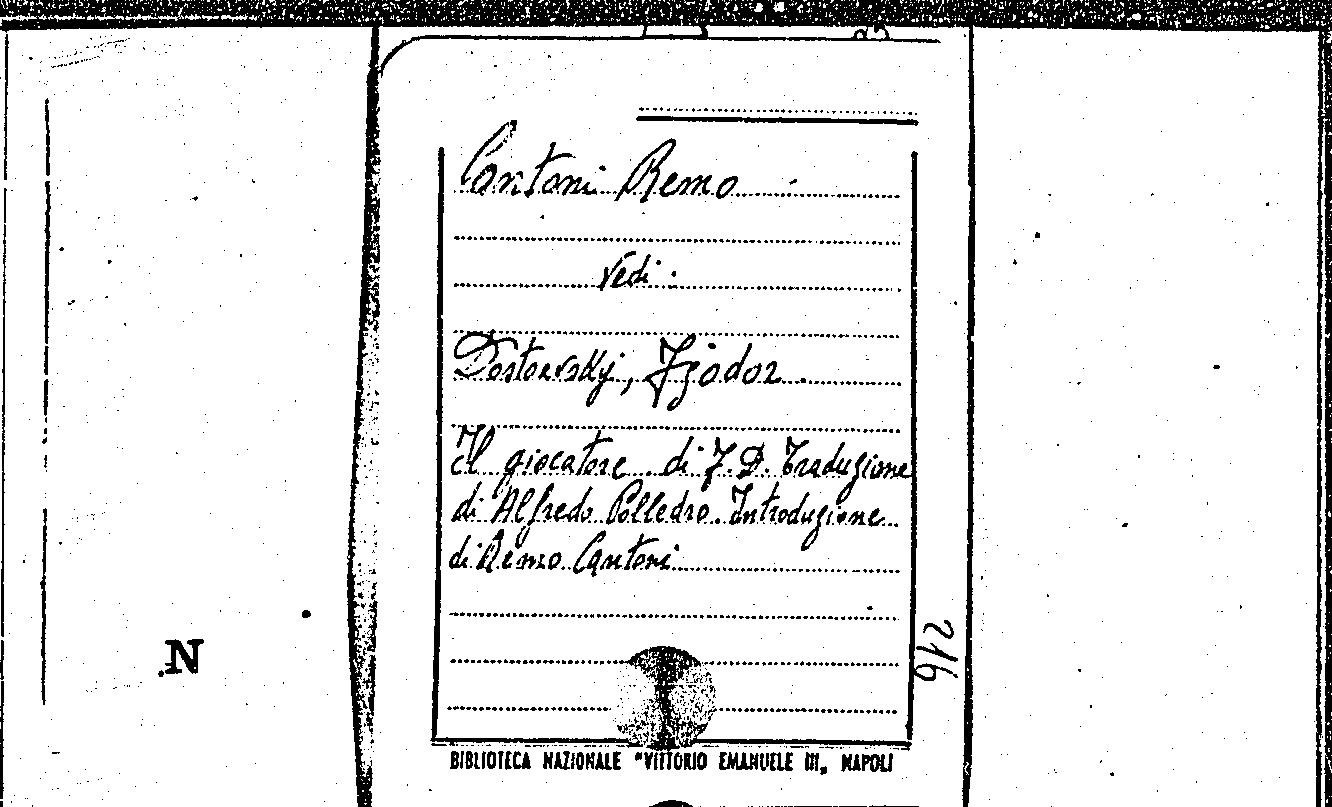 Cantoni Remo
Vedi:
Dostoevskij, Fjodor
Il giocatore di F. D. Traduzione
di Alfredo Polledro. Introduzione
di Remo Cantoni
216
N
BIBLIOTECA NAZIONALE "VITTORIO EMANUELE III„ NAPOLI